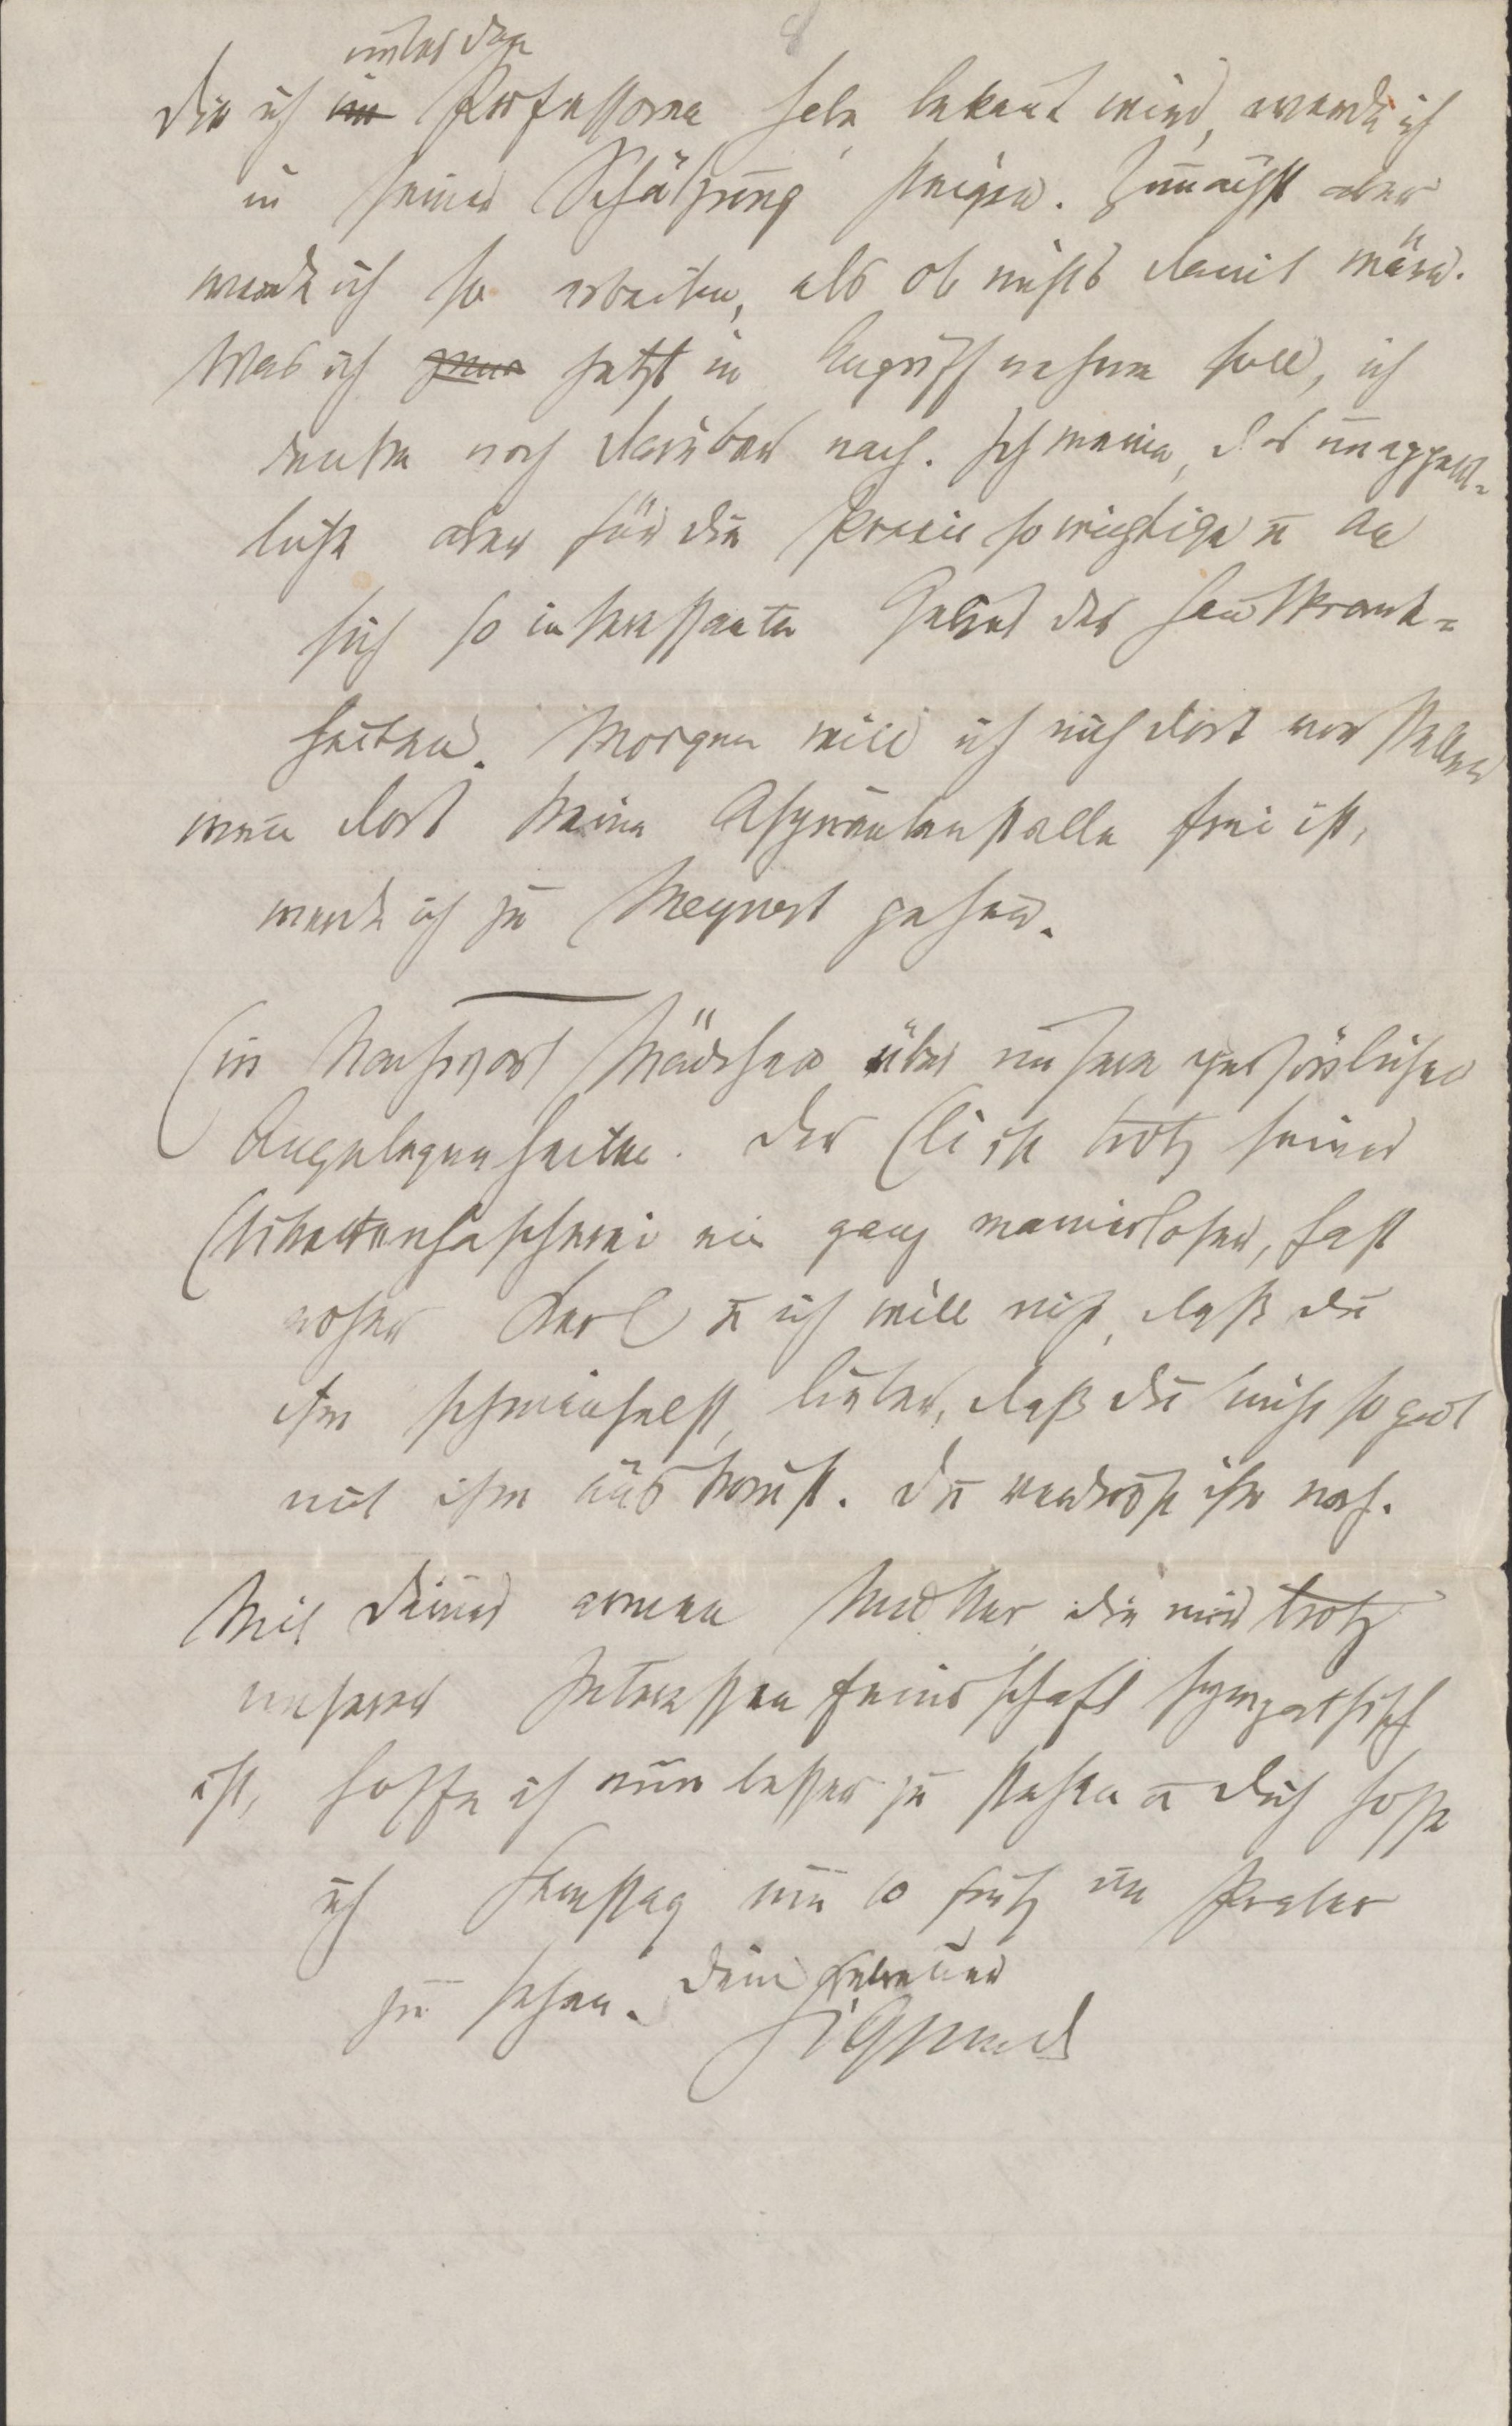 8
unter den
die ich im Professoren habe, bekannt wird, werde ich
in seiner Schätzung steigen. Zunächst aber
werde ich so arbeiten, als ob nichts damit wäre.
Was ich jetzt in Angriff nehmen soll, ich
denke noch darüber nach. Ich meine, das unappetit=
liche aber für die Praxis so wichtige u an
sich so interessante Gebiet der Hautkrank=
heiten. Morgen will ich mich dort vorstellen
wenn dort keine Aspirantenstelle frei ist,
werde ich zu Meynert gehen.
Ein Nachwort Mädchen über unsere persönlichen
Angelegenheiten. Der Eli ist trotz seiner
Etikettenhascherei ein ganz manierloser, fast
roher Kerl u ich will nicht, daß du
ihm schmeichelst, lieber, daß du nicht so gut
mit ihm auskommst. Du verdirbst ihn noch.
Mit deiner armen Mutter die mir trotz
unserer Interessenfeindschaft sympathisch
ist, hoffe ich nun besser zu stehen u dich hoffe
ich Samstag um 10 früh im Prater
zu sehen. Dein getreuer
Sigmund